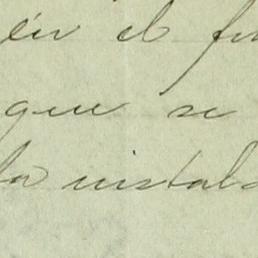 én el fu
que se
la instala